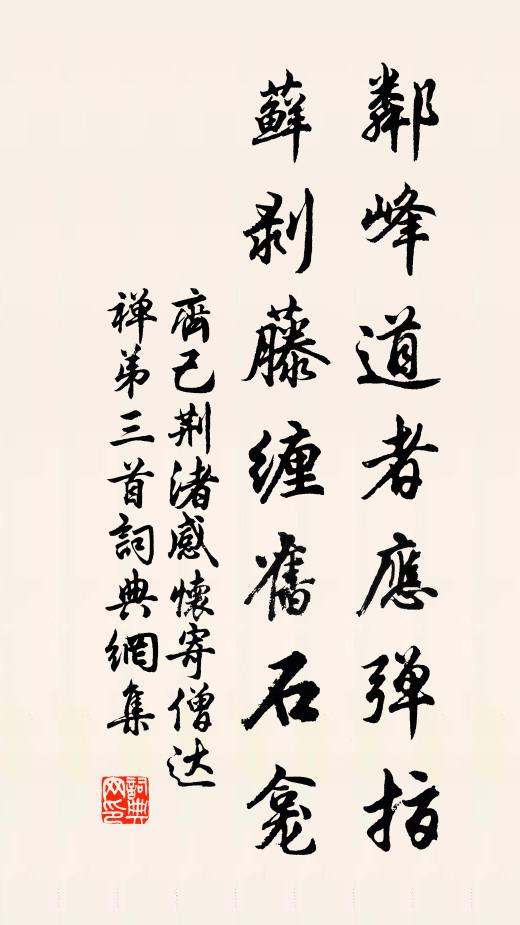 鄰峰道者應弹指
蘚剥藤缠舊石龛
齊己荆渚感懷寄僧达
禅弟三首詞典網集
詞典
网印